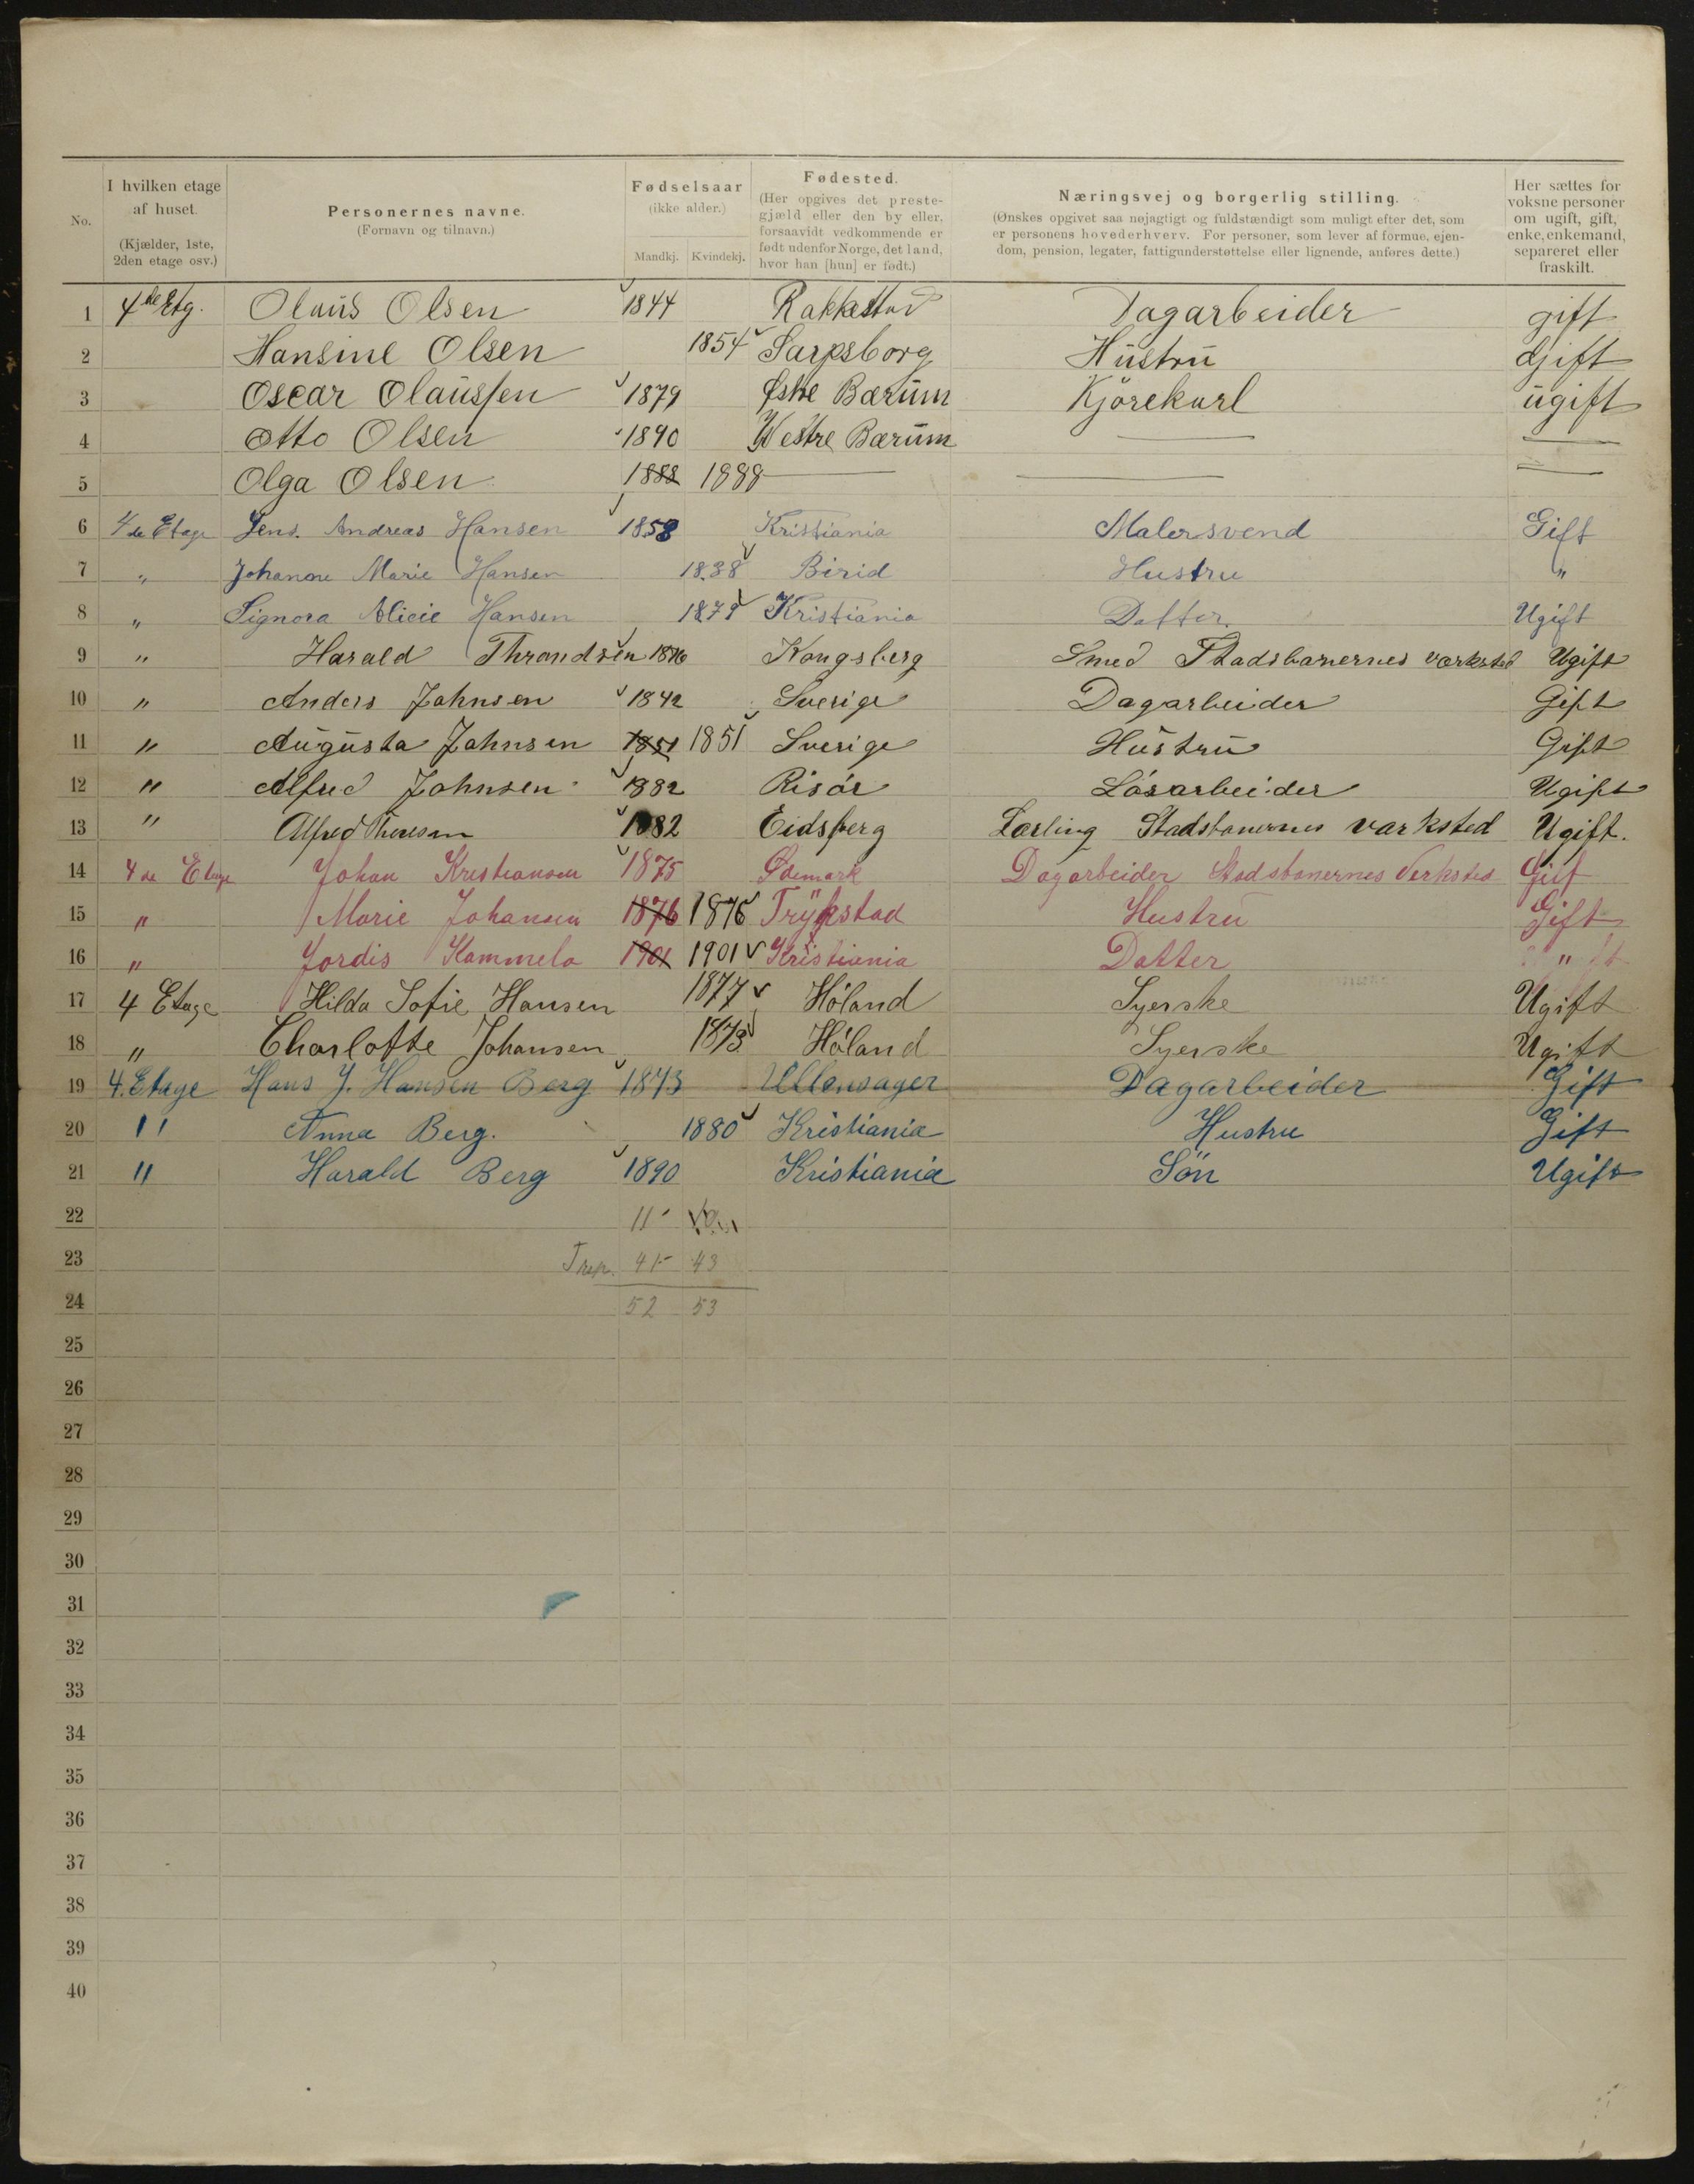 No.
I hvilken etage af huset. (Kjælder, 1ste, 2den etage osv.)
Personernes navne. (Fornavn og tilnavn.)
Fødselsaar (ikke alder.) Mandkj. Kvindekj.
Fødested. (Her opgives det prestegjæld eller den by eller, forsaavidt vedkommende er født udenfor Norge, det land, hvor han [hun] er født.)
Næringsvej og borgerlig stilling. (Ønskes opgivet saa nøjagtigt og fuldstændigt som muligt efter det, som er personens hovederhverv. For personer, som lever af formue, ejendom, pension, legater, fattigunderstøttelse eller lignende, anføres dette.)
Her sættes for voksne personer om ugift, gift, enke, enkemand, separeret eller fraskilt.
1 4de Etg. Olaus Olsen 1844 Rakkestad Dagarbeider gift
2 Hansine Olsen 1854 Sarpsborg Hustru Gift
3 Oscar Olaussen 1879 Østre Bærum Kjörekarl ugift
4 Otto Olsen 1890 Westre Bærum —— ——
5 Olga Olsen 1888 1888 —— —— ——
6 4de Etage Jens. Andreas Hansen 1858 Kristiania Malersvend Gift
7 " Johanne Marie Hansen 1838 Birid Hustru "
8 " Signora Alicie Hansen 1879 Kristiania Datter. Ugift
9 " Harald Throndsen 1876 Kongsberg Smed Stadsbanernes værksted Ugift
10 " Anders Johnsen 1842 Sverige Dagarbeider Gift
11 " Augusta Johnsen 1851 1851 Sverige Hustru Gift
12 " Alfred Johnsen 1882 Risör Lösarbeider Ugift
13 " Alfred Thoresen 1882 Eidsberg Lærling Stadsbanernes værksted Ugift.
14 4de Etage Johan Kristiansen 1875 Ødemark Dagarbeider Stadsbanernes Verksted Gift
15 " Marie Johansen 1876 1876 Trykstad Hustru Gift
16 " Jordis Kammela 1901 1901 Kristiania Datter "
17 4 Etage Hilda Sofie Hansen 1877 Höland Syerske Ugift
18 " Charlotte Johansen 1873 Höland Syerske Ugift
19 4. Etage Hans J. Hansen Berg 1873 Ullensager Dagarbeider Gift
20 " Anna Berg. 1880 Kristiania Hustru Gift
21 " Harald Berg 1890 Kristiania Sön Ugift
22 11
23 41 43
24 52 53
25
26
27
28
29
30
31
32
33
34
35
36
37
38
39
40